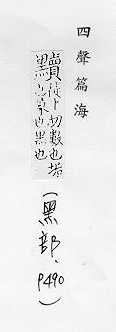 四聲篇海
黷徒卜切數也垢
也蒙也黑也
(黑部、P490)